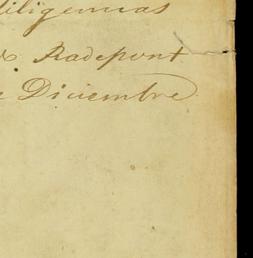 diligencias
Radepont
Diciembre